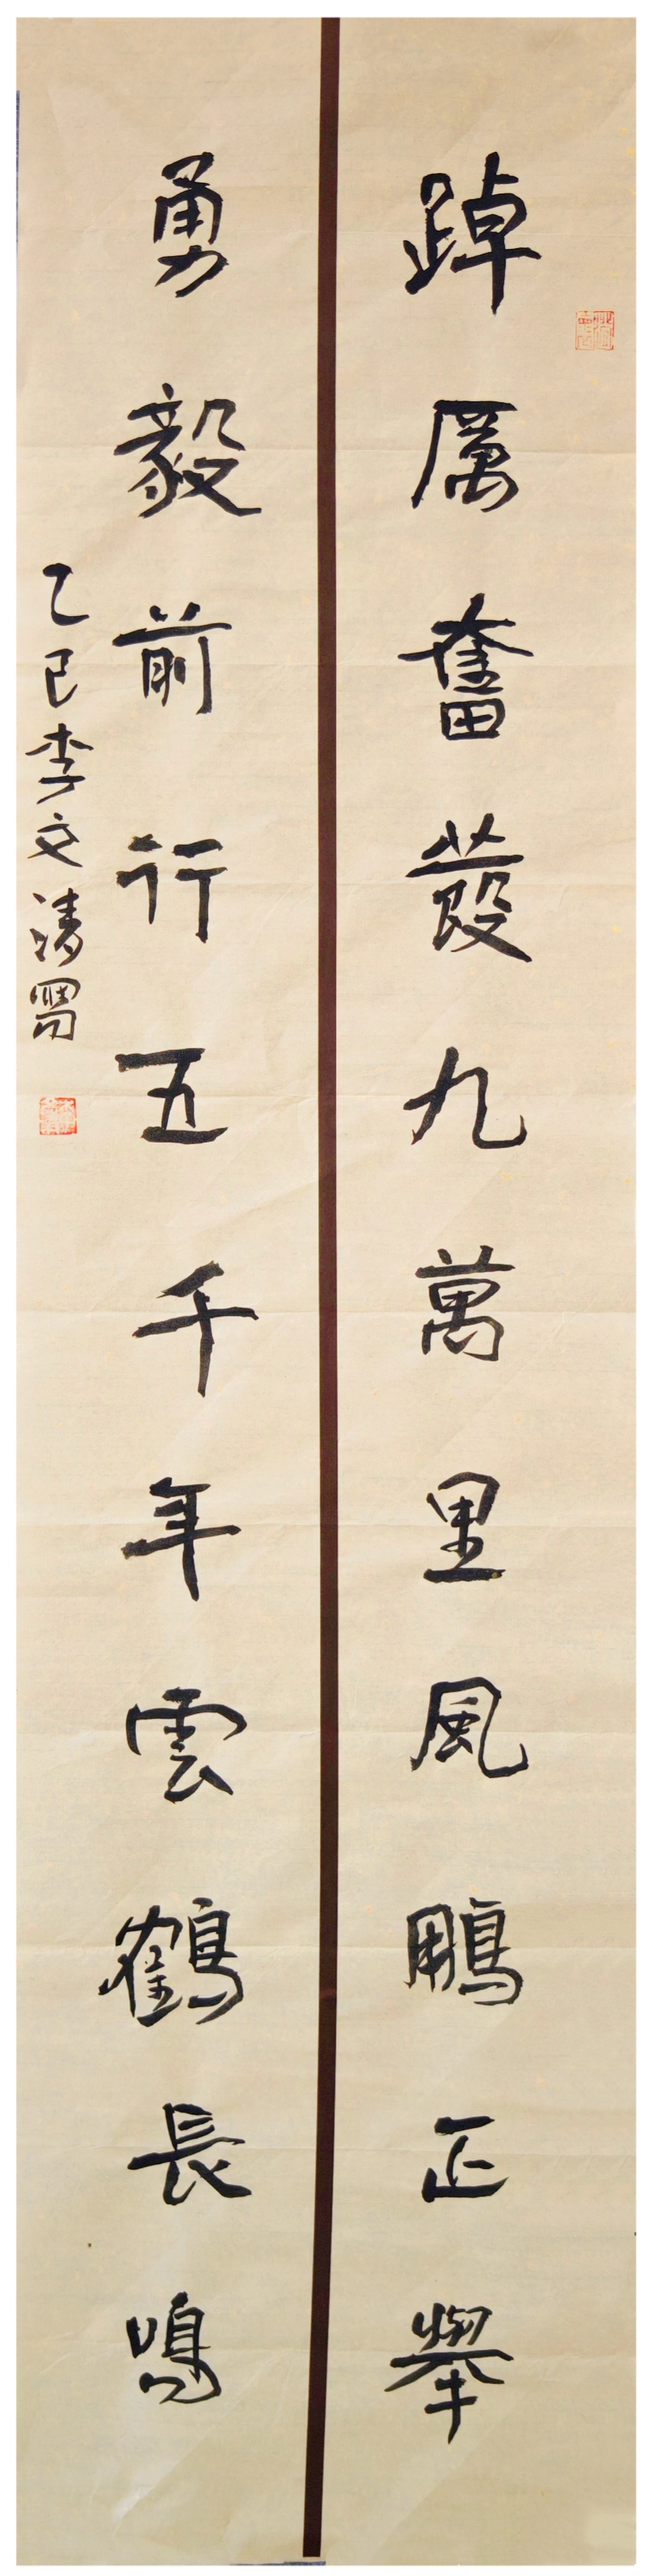 踔厲奮發九萬里風鵬正舉
勇毅前行五千年雲鶴長鳴
乙巳李文清寫